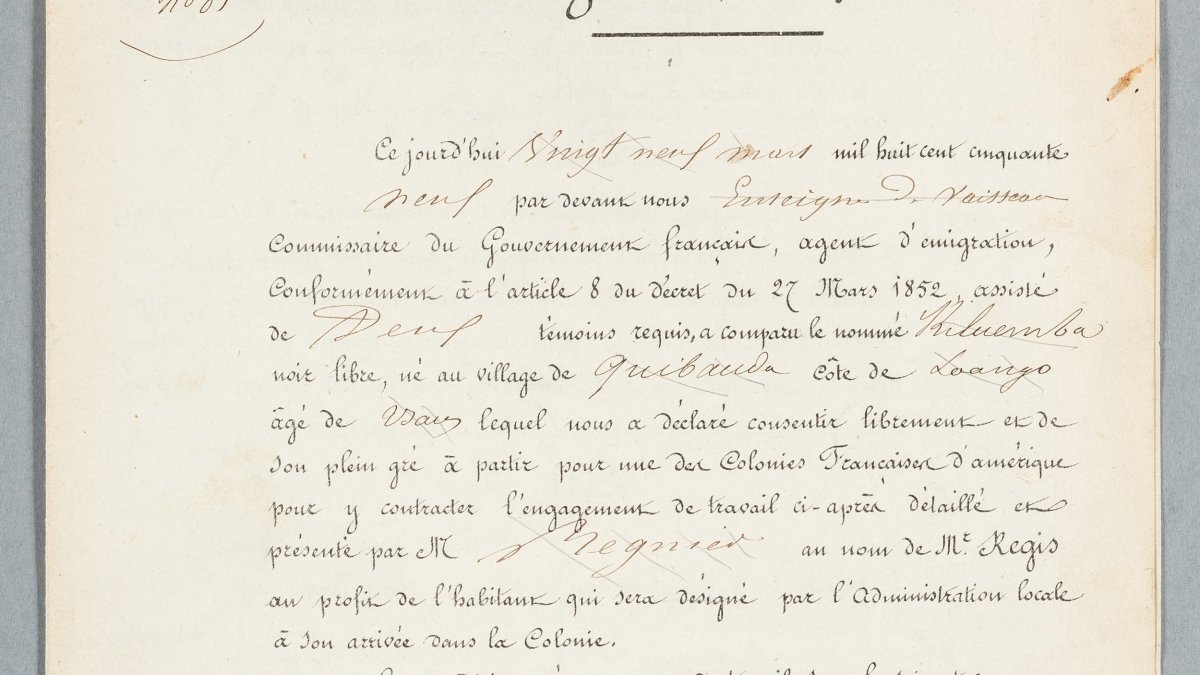 Ce jourd'hui Vingt neuf mars mil huit cent cinquante
neuf par devant nous Enseigne de Vaisseau
Commissaire du Gouvernement français, agent d'émigration,
Conformément à l'article 8 du décret du 27 Mars 1852, assisté
de Deux témoins requis, a comparu le nommé Kiluemba
noir libre, né au village de Quibanda côte de Loango
âgé de lequel nous a déclaré consentir librement et de
son plein gré à partir pour une des Colonies Françaises d'amérique
pour y contracter l'engagement de travail ci-après détaillé et
présenté par M Regnier au nom de Mr. Regis
au profit de l'habitant qui sera désigné par l'Administration locale
à son arrivée dans la Colonie.